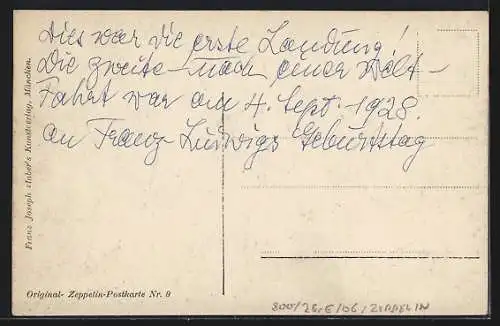 Dies war die erste Landung!
Die zweite - nach einer Welt-
Fahrt war am 4. Sept. 1928.
an Franz Ludwigs Geburtstag
Franz Joseph Huber's Kunstverlag, München.
Original- Zeppelin-Postkarte Nr. 9
800/26,E/06/ZEPPELIN